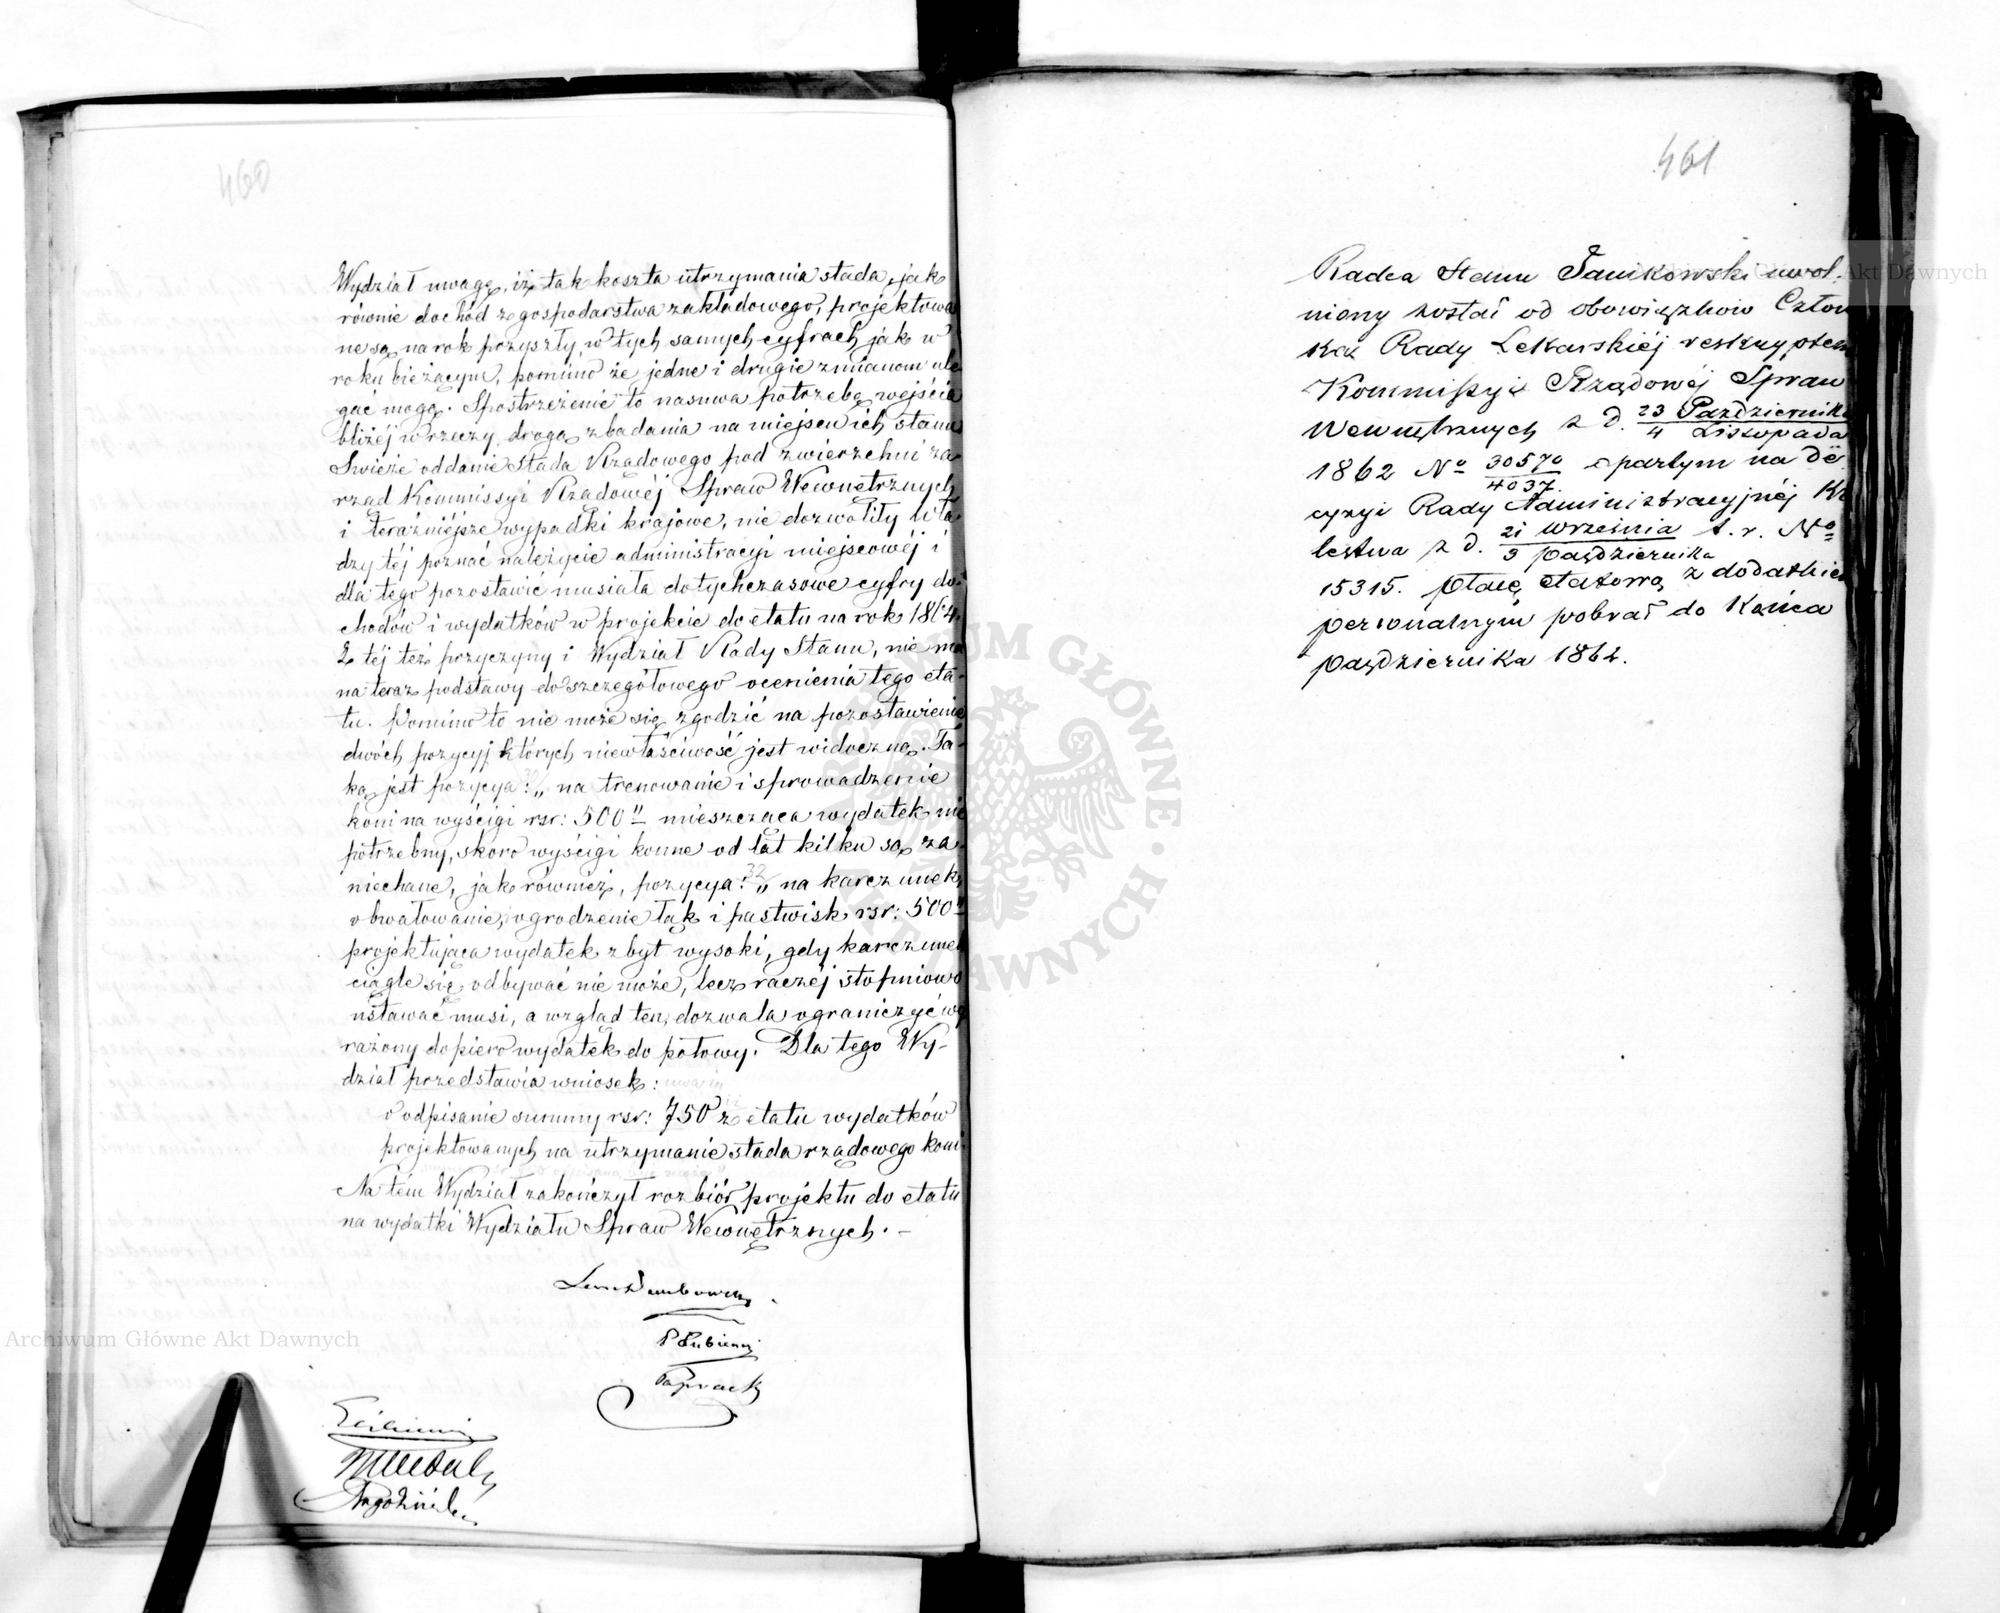 460
Wydział uwagę, iż tak koszta utrzymania stada, jak
równie dochód z gospodarstwa zakładowego, projektowa
ne są na rok przyszły, w tych samych cyfrach, jak w
roku bieżącym, pomimo że jedne i drugie zmianom ule
gać mogą. Spostrzeżenie to nasuwa potrzebę wejścia
bliżéj w rzeczy, drogą zbadania na miejscu ich stanu
Świeże oddanie Stada Rządowego pod zwierzchni za-
rząd Kommissyi Rządowéj Spraw Wewnętrznych
i teraźniéjsze wypadki krajowe, nie dozwoliły Wła
dzy téj poznać należycie administracyi miejscowéj i
dla tego pozostawić musiała dotychczasowe cyfry do-
chodów i wydatków w projekcie do etatu na rok 1864.
Z téj też przyczyny i Wydział Rady Stanu, nie ma
na teraz podstawy do szczegółowego ocenienia tego eta-
tu. Pomimo to nie może się zgodzić na pozostawienie
dwóch pozycyj których niewłaściwość jest widoczną. Ta-
ką jest pozycya: 30/ „na trenowanie i sprowadzenie
koni na wyścigi rsr: 500" mieszcząca wydatek nie
potrzebny, skoro wyścigi konne od lat kilku są za-
niechane, jako również, pozycya: 32/ „na karczunek,
obwałowanie, ogrodzenie łąk i pastwisk rsr: 500"
projektująca wydatek zbyt wysoki, gdy karczunek
ciągle się odbywać nie może, lecz raczéj stopniowo
ustawać musi, a wzgląd ten, dozwala ograniczyć wy
rażony dopiero wydatek do połowy. Dla tego Wy-
dział przedstawia wniosek:
o odpisanie summy rsr: 750 z etatu wydatków
projektowanych na utrzymanie stada rządowego koni.
Na tém Wydział zakończył rozbiór projektu do etatu
na wydatki Wydziału Spraw Wewnętrznych. —
Łubieński
461
Radca Stanu Janikowski uwol-
niony został od obowiązków Człon
ka Rady Lekarskiéj reskryptem
Kommissyi Rządowéj Spraw
Wewnętrznych z d. 23 Października
4 Listopada
1862 No 30570
4037 opartym na de
cyzyi Rady Administracyjnéj Kró
lestwa z d. 21 Września
9 Października t. r. No
15315. Płacę etatową z dodatkiem
personalnym pobrał do końca
Października 1862.
Archiwum Główne Akt Dawnych
Archiwum Główne Akt Dawnych
ARCHIWUM GŁÓWNE AKT DAWNYCH